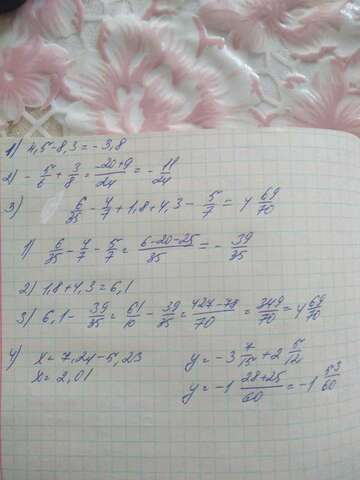 1) 4,5-8,3=-3,8
2) -5/6+3/8=(-20+9)/24=-11/24
3) 6/35-4/7+1,8+4,3-5/7=4 69/70
1) 6/35-4/7-5/7=(6-20-25)/35=-39/35
2) 1,8+4,3=6,1
3) 6,1-39/35=61/10-39/35=(427-78)/70=349/70=4 69/70
4) x=7,24-5,23
x=2,01
y=-3 7/15+2 5/12
y=-1 (28+25)/60=-1 53/60